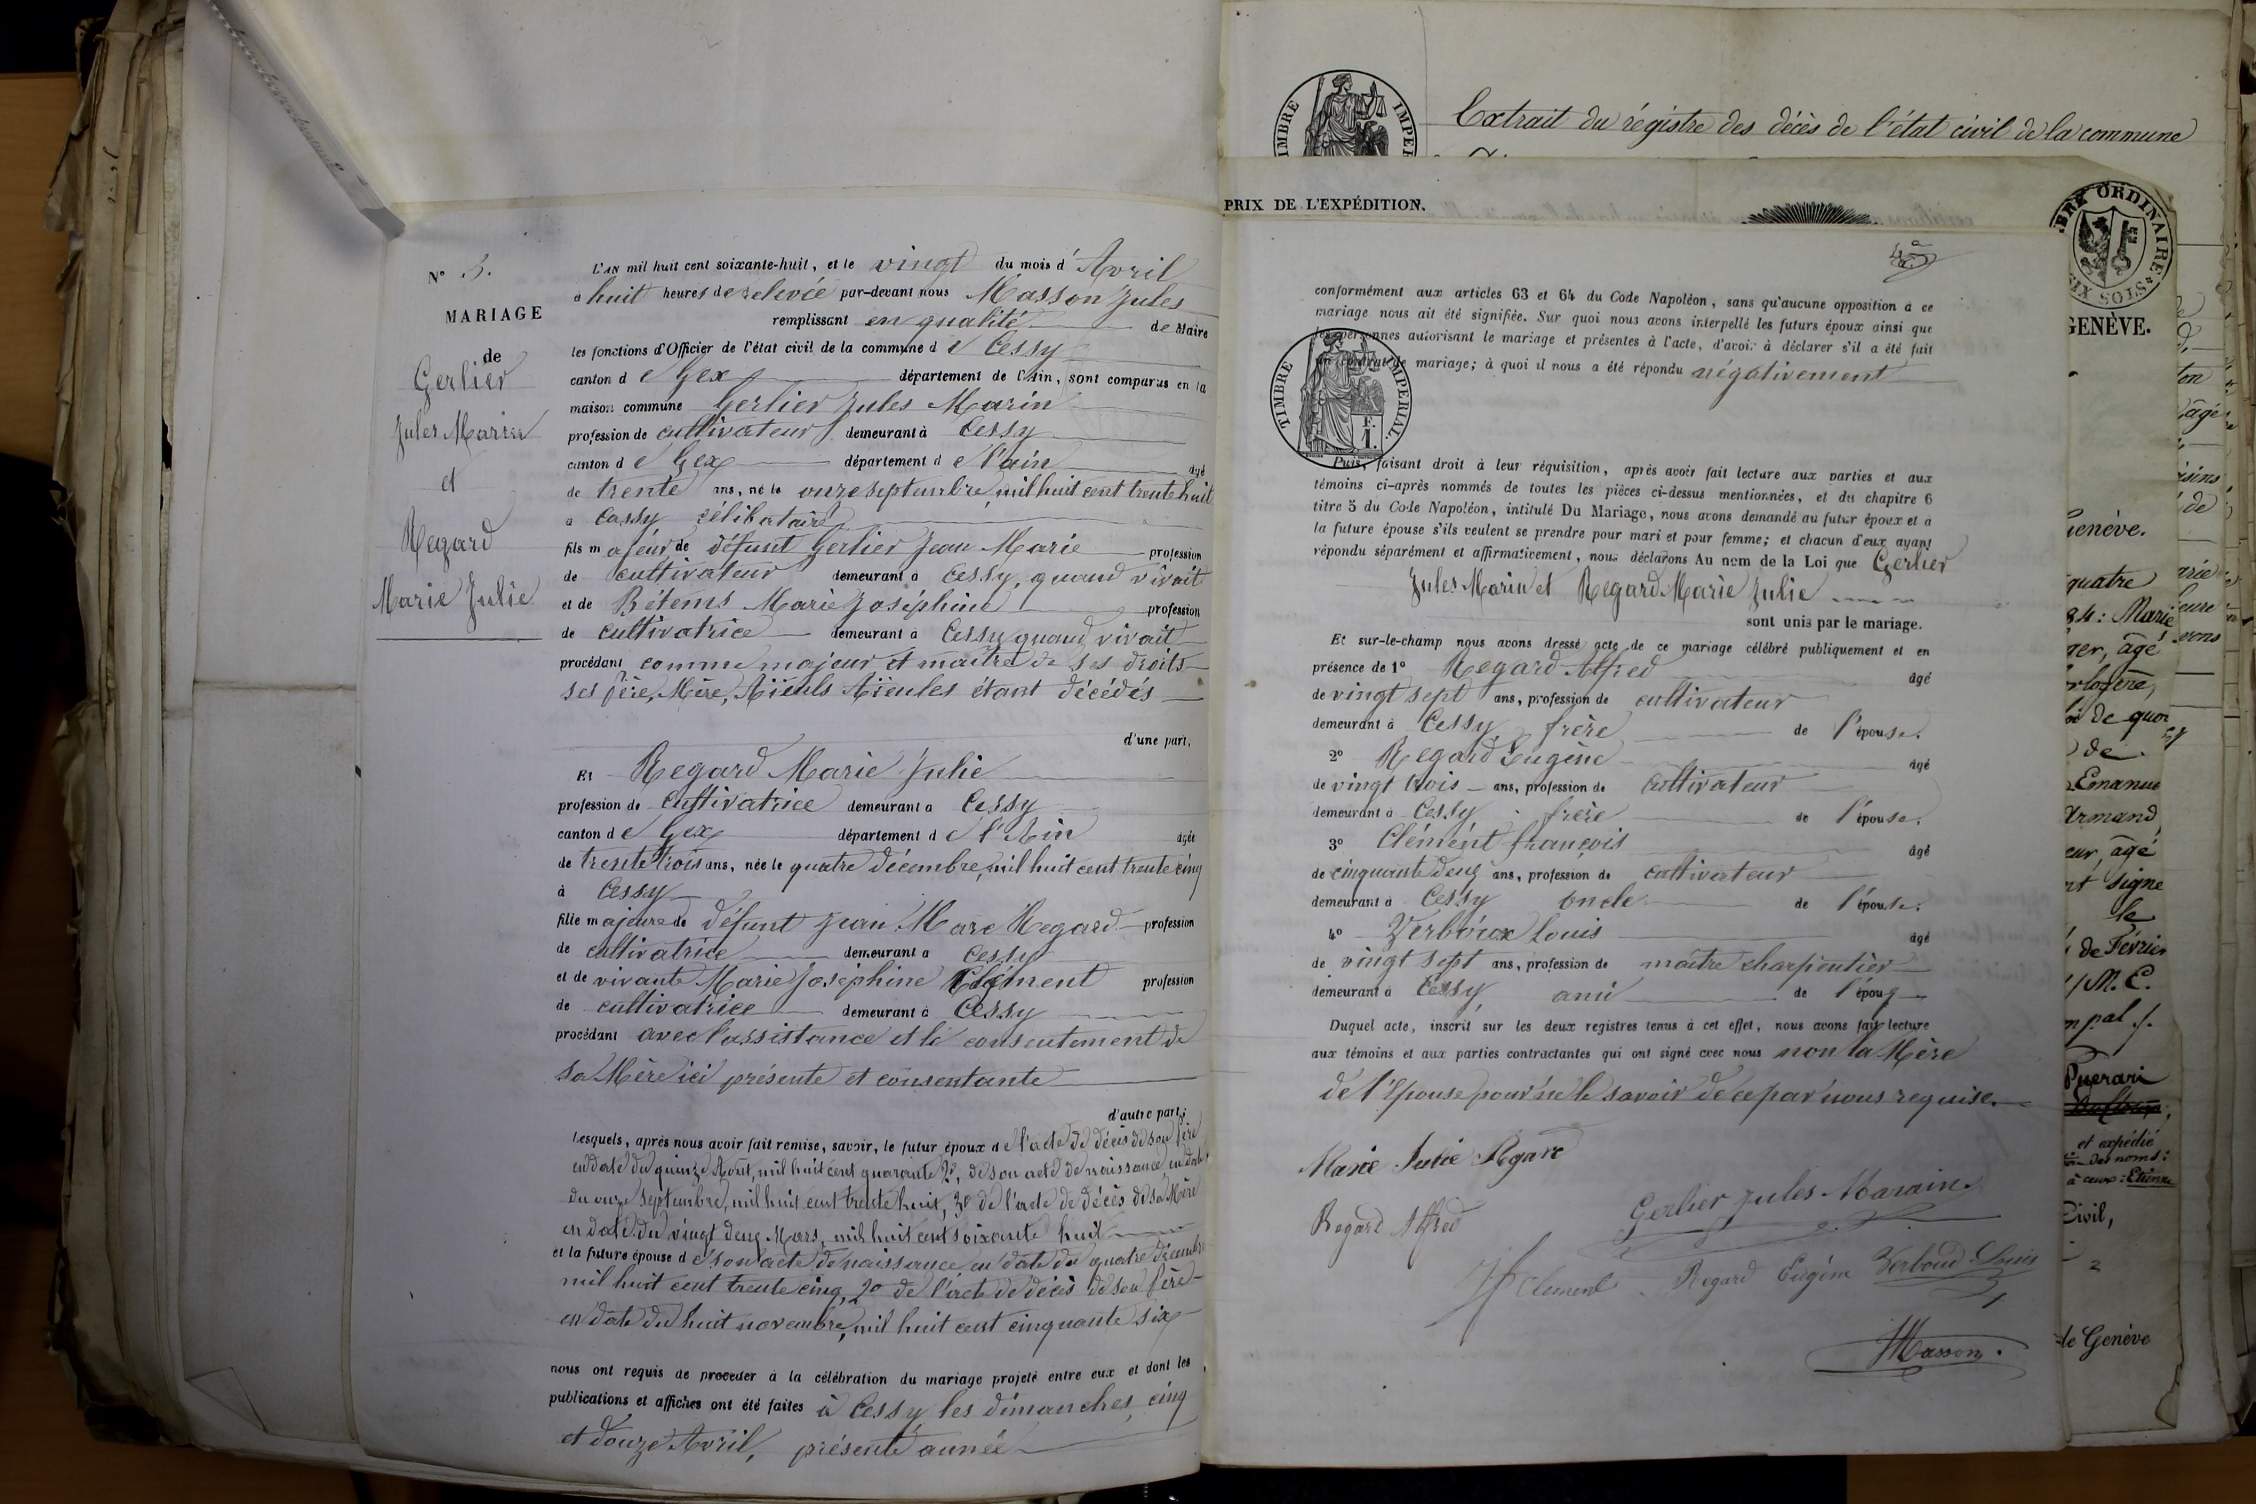 N° 3.
MARIAGE
de
Gerlier
Jules Marin
et
Regard
Marie Julie
L'AN mil huit cent soixante-huit, et le vingt du mois d'Avril
à huit heures de relevée par-devant nous Masson Jules
remplissant en qualité de Maire
les fonctions d'Officier de l'état civil de la commune de Cessy
canton de Gex département de l'Ain, sont comparus en la
maison commune Gerlier Jules Marin
profession de cultivateur demeurant à Cessy
canton de Gex département de l'ain âgé
de trente ans, né le onze septembre, mil huit cent trente huit
à Cessy célibataire
fils majeur de défunt Gerlier Jean Marie profession
de cultivateur demeurant à Cessy, quand vivait
et de Bétems Marie Joséphine profession
de cultivatrice demeurant à Cessy quand vivait
procédant comme majeur et maître de ses droits
ses Père, Mère, Aïeuls Aïeules étant décédés
d'une part,
Et Regard Marie Julie
profession de cultivatrice demeurant a Cessy
canton de Gex département de l'Ain âgée
de trente trois ans, née le quatre décembre, mil huit cent trente cinq
à Cessy
fille majeure de défunt Jean Marc Regard profession
de cultivatrice demeurant a Cessy
et de vivante Marie Joséphine Clément profession
de cultivatrice demeurant à Cessy
procédant avec l'assistance et le consentement de
sa Mère ici présente et consentante
d'autre part;
Lesquels, après nous avoir fait remise, savoir, le futur époux de l'acte de décès de son Père
en date du quinze Août, mil huit cent quarante 2°, de son acte de naissance en date
du onze Septembre, mil huit cent trente huit, 3° de l'acte de décès de sa Mère
en date du vingt deux Mars, mil huit cent soixante huit
et la future épouse de son acte de naissance en date du quatre décembre
mil huit cent trente cinq, 2° de l'acte de décès de son Père
en date du huit novembre, mil huit cent cinquante six
nous ont requis de proceder à la célébration du mariage projeté entre eux et dont les
publications et affiches ont été faites à Cessy les dimanches, cinq
et douze Avril, présente année
TIMBRE IMPER
Extrait du régistre des décès de l'état civil de la commune
PRIX DE L'EXPÉDITION.
conformément aux articles 63 et 64 du Code Napoléon, sans qu'aucune opposition à ce
mariage nous ait été signifiée. Sur quoi nous avons interpellé les futurs époux ainsi que
les personnes autorisant le mariage et présentes à l'acte, d'avoir à déclarer s'il a été fait
un contrat de mariage; à quoi il nous a été répondu négativement
TIMBRE IMPERIAL.
F.
1.
Puis, faisant droit à leur réquisition, après avoir fait lecture aux parties et aux
témoins ci-après nommés de toutes les pièces ci-dessus mentionnées, et du chapitre 6
titre 5 du Code Napoléon, intitulé Du Mariage, nous avons demandé au futur époux et à
la future épouse s'ils veulent se prendre pour mari et pour femme; et chacun d'eux ayant
répondu séparément et affirmativement, nous déclarons Au nom de la Loi que Gerlier
Jules Marin et Regard Marie Julie
sont unis par le mariage.
Et sur-le-champ nous avons dressé acte de ce mariage célébré publiquement et en
présence de 1° Regard Alfred âgé
de vingt sept ans, profession de cultivateur
demeurant à Cessy frère de l'épouse.
2° Regard Eugène âgé
de vingt trois ans, profession de cultivateur
demeurant à Cessy frère de l'épouse.
3° Clément françois âgé
de cinquante deux ans, profession de cultivateur
demeurant à Cessy oncle de l'épouse.
4° Verboux Louis âgé
de vingt sept ans, profession de maître charpentier
demeurant à Cessy, ami de l'époux
Duquel acte, inscrit sur les deux registres tenus à cet effet, nous avons fait lecture
aux témoins et aux parties contractantes qui ont signé avec nous non la Mère
de l'Epouse pour ne le savoir de ce par nous requise.
Marie Julie Regard
Gerlier Jules Marain.
Regard Alfred
Clement Regard Eugène Verboud Louis
JMasson.
TIMBRE ORDINAIRE
SIX SOLS
GENÈVE.
Genève.
quatre
84: Marie
âgé
de quoi
de
Emanue
Armand,
eur, âgé
nt signé
le
de Février
M. C.
Puerari
et expédié
des noms:
à ceux: Etienne
Civil,
de Genève